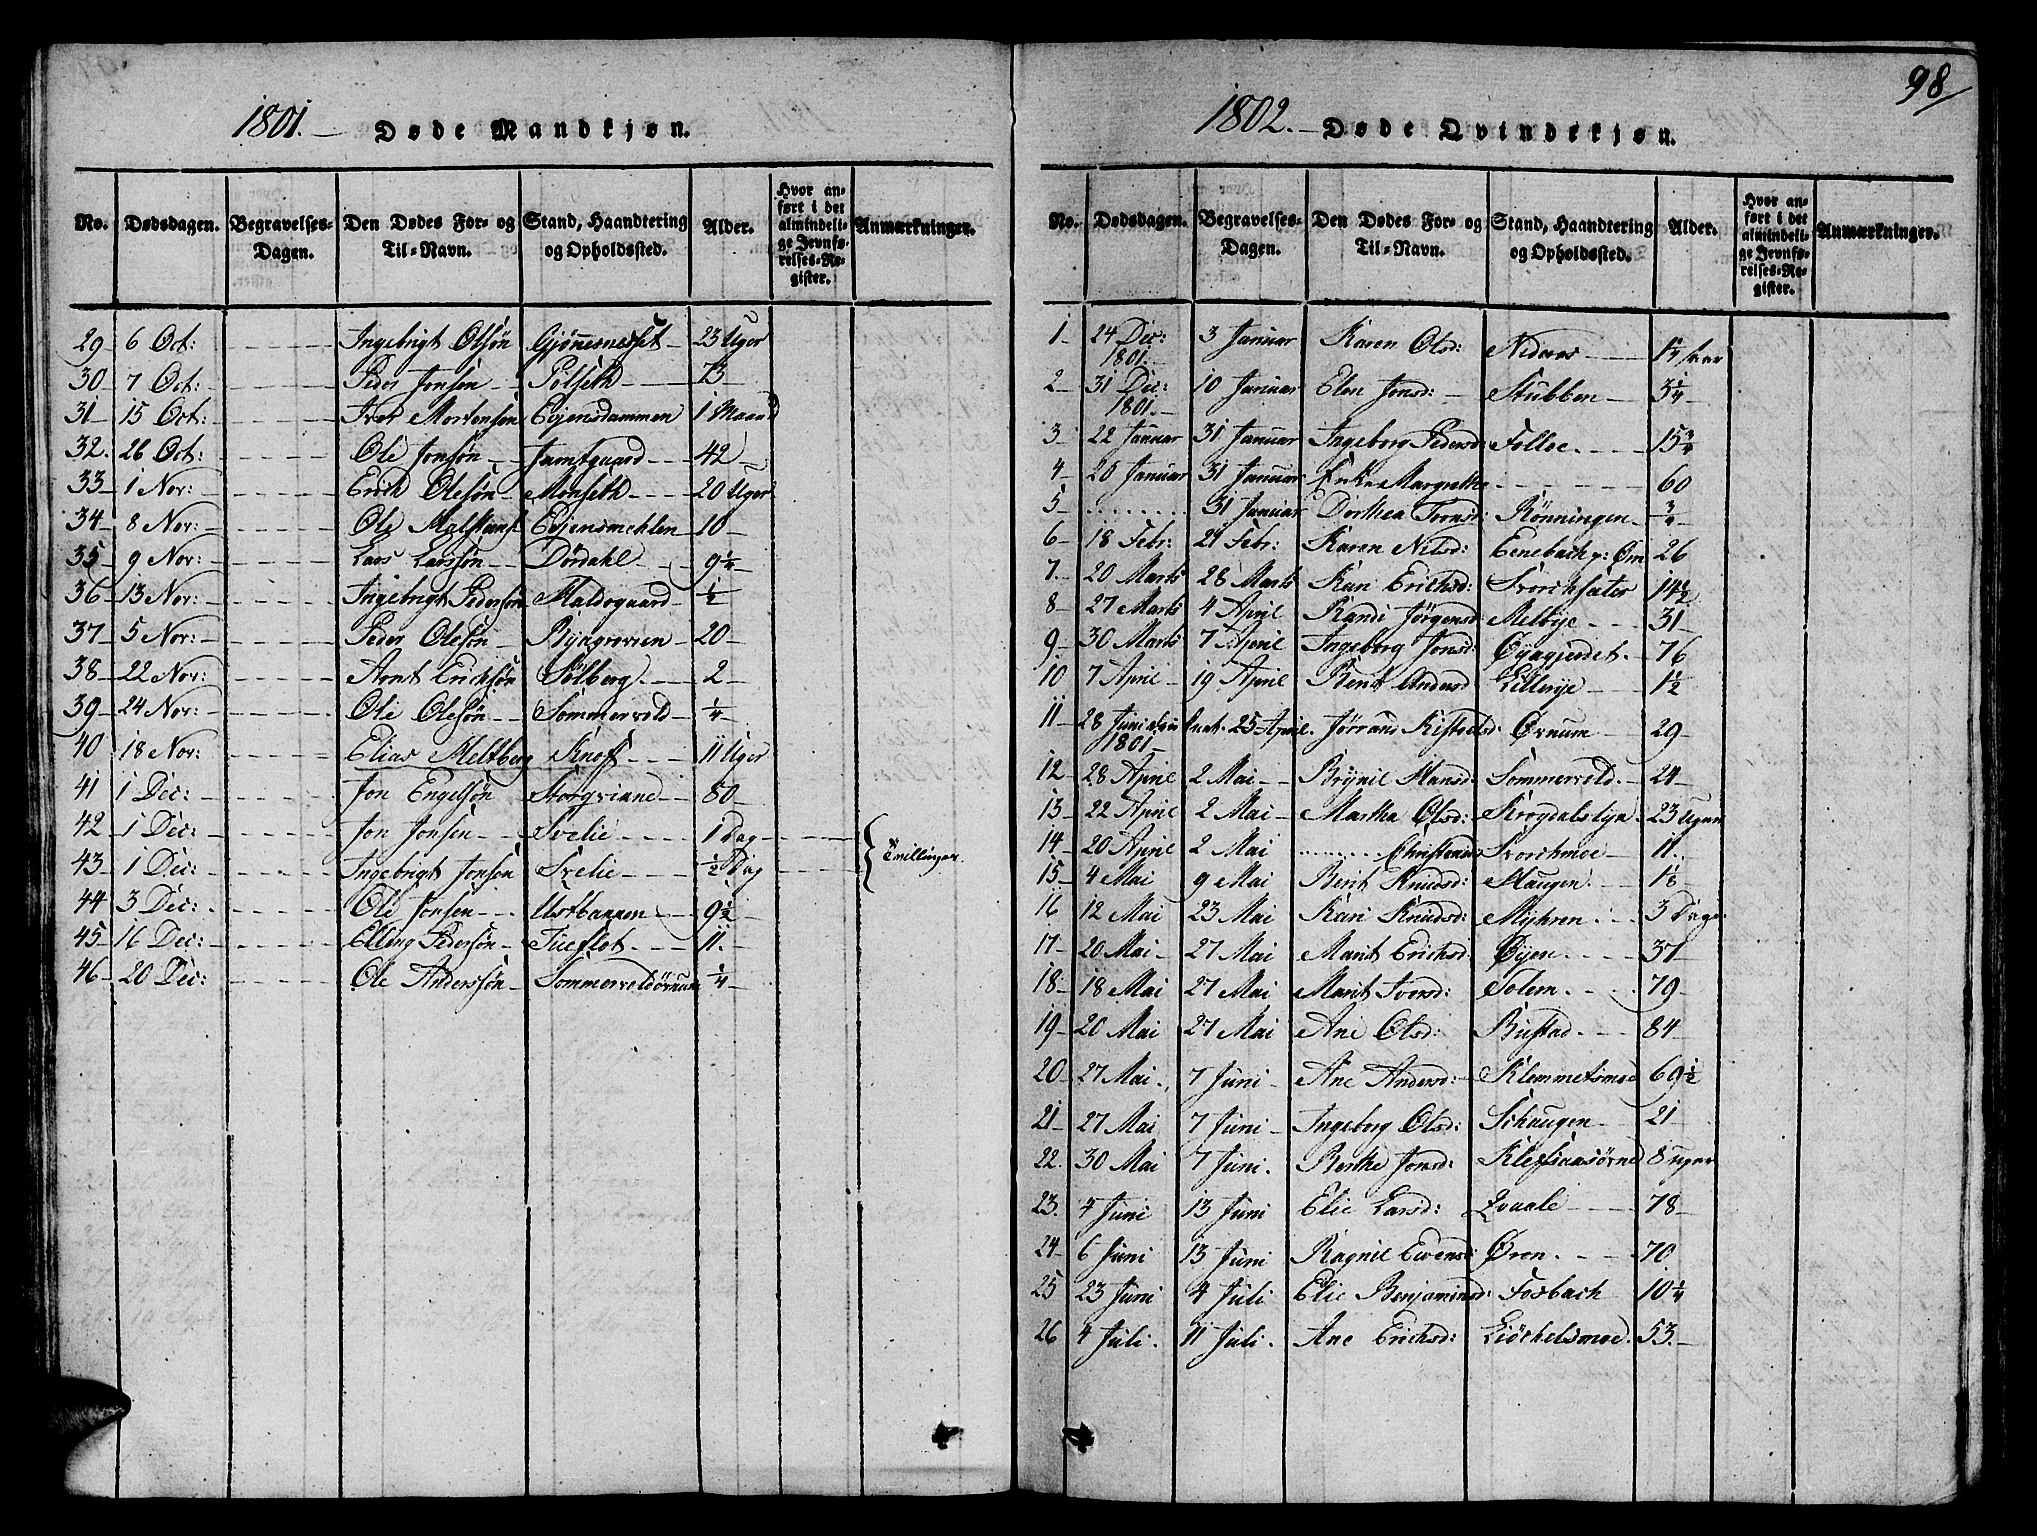 98
1801.— Døde Mandkjøn.
No. Dødsdagen. Begravelses-Dagen. Den Dødes For- og Til-Navn. Stand, Haandtering og Opholdssted. Alder. Hvor anført i det almindelige Jevnførelses-Register. Anmærkninger.
29 6 Oct: Ingebrigt Olsön Gjönnesset 23 Uger
30 7 Oct: Peder Jonsön Pölseth 73
31 15 Oct: Iver Mortensön Evjensdammen 1 Maaned
32. 26 Oct: Ole Jonsön Jamtgaard 42
33 1 Nov: Erich Olesön Monseth 20 Uger
34 8 Nov: Ole Evjensmehlen 10
35 9 Nov: Lars Larssön Dördahl 9 1/4
36 13 Nov: Ingebrigt Pedersön Haldogaard 1/2
37 5 Nov: Peder Olesön 20
38 22 Nov: Arnt Erichsön Solberg 2
39 24 Nov: Ole Olesön Sommervold 1/4
40 18 Nov: Elias Meltberg Knoft 11 Uger
41 1 Dec: Jon Engelsön Storqvinne 80
42 1 Dec: Jon Jonsen Svelie 1 Dag
43 1 Dec: Ingebrigt Jonsen Svelie 1/2 Dag Tvillinger.
44 3 Dec: Ole Jonsen Ustbannen 9 1/2
45 16 Dec: Elling Pedersön Tueflot 11.
46 20 Dec: Ole Anderssön Sommervoldörnum 1/4
1802.— Døde Qvindekjøn.
No. Dødsdagen. Begravelses-Dagen. Den Dødes For- og Til-Navn. Stand, Haandtering og Opholdssted. Alder. Hvor anført i det almindelige Jevnførelses-Register. Anmærkninger.
1 24 Dec: 1801. 3 Januar Karen Olsd: Nideros 1 1/4 Aar
2 31 Dec: 1801. 10 Januar Elen Jonsd: Stubben 3 1/4
3 22 Januar 31 Januar Ingeborg Pedersd: Folloe 15 3/4
4 20 Januar 31 Januar Enke Margrethe 60
5 31 Januar Dorthea Iversd: Rönningen 3/4
6 18 Febr: 21 Febr: Karen Nilsd: Eenebach p: Örn 26
7. 20 Marts 28 Marts Kari Erichsd: Svorchseter 14 1/2
8 27 Marts 4 April Randi Jörgensd Melbye 31
9. 30 Marts 7 April Ingeborg Jonsd: Öyagjerdet 76
10 7 April 19 April Berit Andersd Lillerye 1 1/2
11 28 Juni 1801 25 April Jörrand Kistoelsd: Örnum 29
12 28 April 2 Mai Brynil Hansd: Sommervold 24
13 22 April 2 Mai Martha Olsd: Krogdalslya 23 Uger
14 20 April 2 Mai Christensd Svorchmoe 11.
15 4 Mai 9 Mai Berit Knudsd: Haugen 1/8
16 12 Mai 23 Mai Kari Knudsd: Myhren 3 Dage
17 20 Mai 27 Mai Marit Erichsd: Öyen 37
18 18 Mai 27 Mai Marit Iversd: Solem 79
19 20 Mai 27 Mai Ane Olsd: Bustad 84
20 27 Mai 7 Juni Ane Andersd: Klemmetsmoe 69 1/2
21 27 Mai 7 Juni Ingeborg Olsd: Schaugen 21
22. 30 Mai 7 Juni Berthe Jonsd: 8 uger
23. 4 Juni 13 Juni Elie Larsd: Qvaale 78
24 6 Juni 13 Juni Ragnil Evensd: Ören 70
25 23 Juni 4 Juli Elie Benjaminsd: Fosbach 10 1/4
26 4 Juli 11 Juli Ane Erichsd: Liöchelsmoe 53